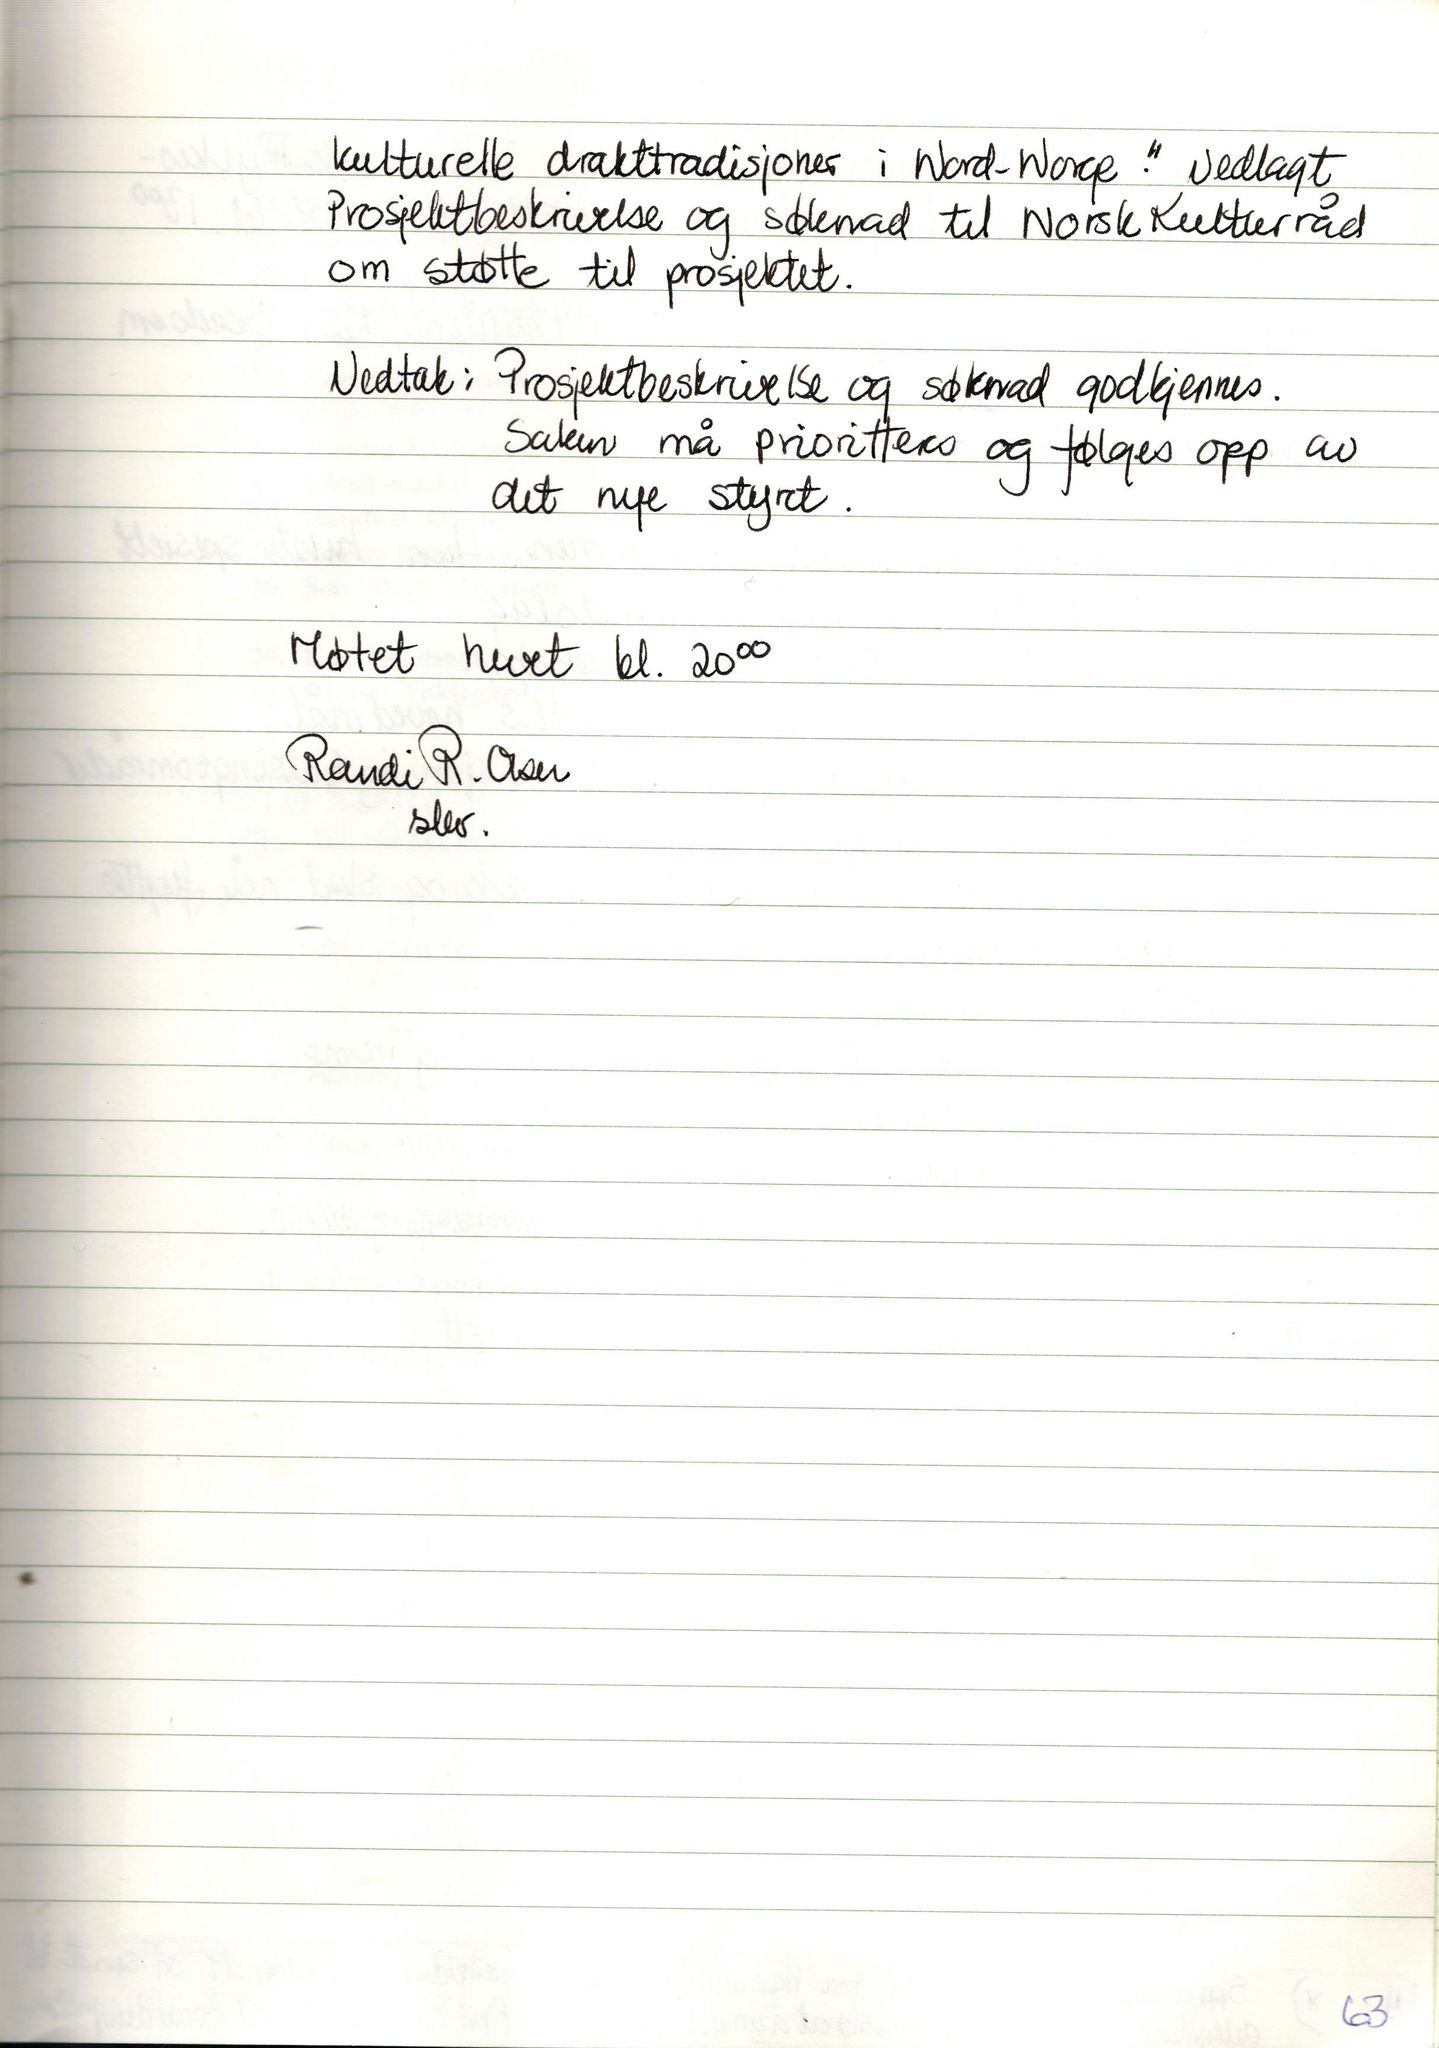 kulturelle drakttradisjoner i Nord-Norge." Vedlagt
Prosjektbeskrivelse og søknad til Norsk Kulturråd
om støtte til prosjektet.
Vedtak: Prosjektbeskrivelse og søknad godkjennes.
Saken må prioritteres og følges opp av
det nye styret.
Møtet hevet kl. 20⁰⁰
Randi R. Olsen
skr.
63